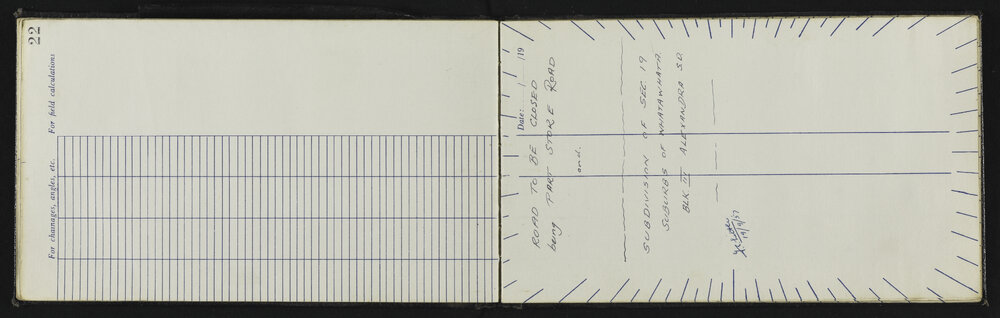 22
For field calculations
For chainages, angles, etc.
Date: / /19
ROAD TO BE CLOSED
being PART STORE ROAD
and.
SUBDIVISION OF SEC. 19
SUBURBS OF WHATAWHATA.
BLK III ALEXANDRA S.D.
19/9/57